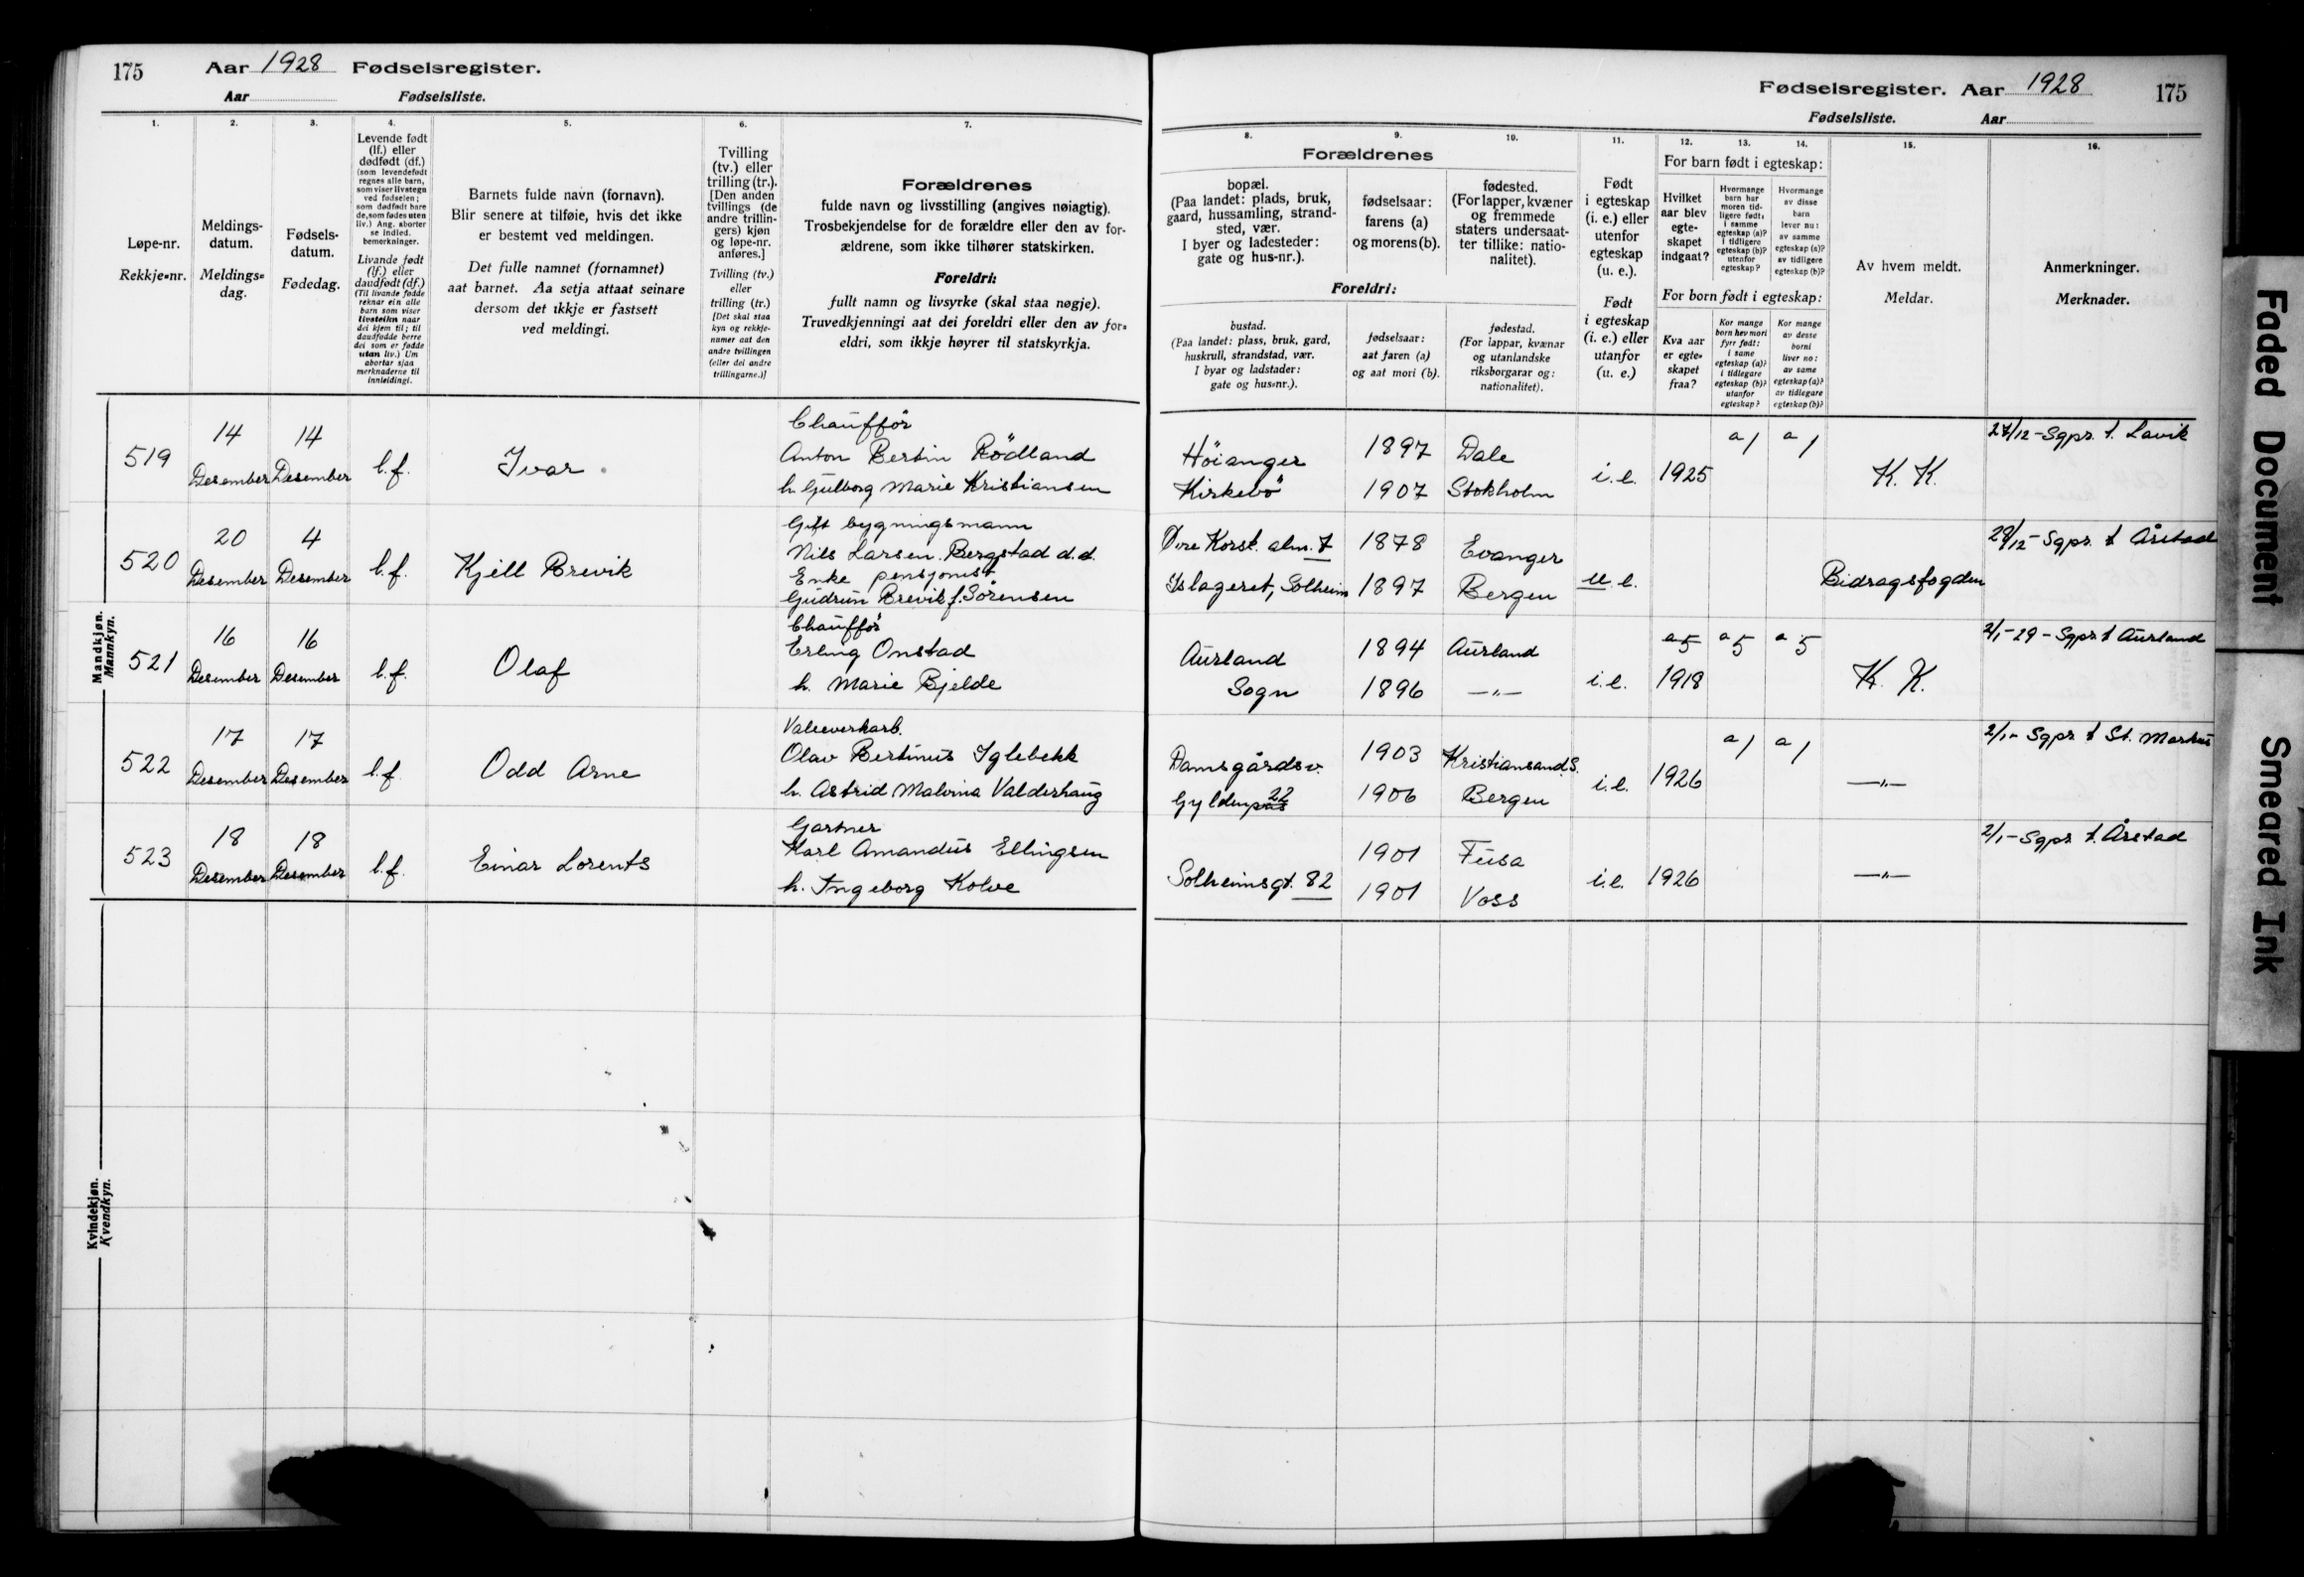 175
Aar 1928 Fødselsregister.
Aar Fødselsliste.
1. 2. 3. 4. 5. 6. 7.
Løpe-nr.
Rekkje-nr.
Meldings-
datum.
Meldings-
dag.
Fødsels-
datum.
Fødedag.
Levende født
(lf.) eller
dødfødt (df.)
(som levendefødt
regnes alle barn,
som viser livstegn
ved fødselen;
som dødfødt bare
de, som fødes uten
liv.) Ang. aborter
se indled.
bemerkninger.
Livande født
(lf.) eller
daudfødt (df.)
(Til livande fødde
reknar ein alle
barn som viser
livsteikn naar
dei kjem til; til
daudfødde berre
dei som er fødde
utan liv.) Um
abortar sjaa
merknaderne til
innleidingi.
Barnets fulde navn (fornavn).
Blir senere at tilføie, hvis det ikke
er bestemt ved meldingen.
Det fulle namnet (fornamnet)
aat barnet. Aa setja attaat seinare
dersom det ikkje er fastsett
ved meldingi.
Tvilling
(tv.) eller
trilling (tr.).
[Den anden
tvillings (de
andre trillin-
gers) kjøn
og løpe-nr.
anføres.]
Tvilling (tv.)
eller
trilling (tr.)
[Det skal staa
kyn og rekkje-
numer aat den
andre tvillingen
(eller dei andre
trillingarne.)]
Forældrenes
fulde navn og livsstilling (angives nøiagtig).
Trosbekjendelse for de forældre eller den av for-
ældrene, som ikke tilhører statskirken.
Foreldri:
fullt namn og livsyrke (skal staa nøgje).
Truvedkjenningi aat dei foreldri eller den av for-
eldri, som ikkje høyrer til statskyrkja.
Mandkjøn.
Mannkyn.
519 14 Desember 14 Desember l.f. Ivar
Chauffør
Anton Bertin Rödland
h. Gulborg Marie Kristiansen
520 20 Desember 4 Desember l.f. Kjell Brevik
Gift bygningsmann
Nils Larsen Bergstad d.d.
Enke pensjonist
Gudrun Brevik f. Sörensen
521 16 Desember 16 Desember l.f. Olaf
Chauffør
Erling Onstad
h. Marie Bjelde
522 17 Desember 17 Desember l.f. Odd Arne
Valseverkarb.
Olav Bertinus Iglebekk
h. Astrid Malvina Valderhaug
523 18 Desember 18 Desember l.f. Einar Lorents
Gartner
Karl Amandus Ellingsen
h. Ingeborg Kolve
Kvindekjøn.
Kvendkyn.
Fødselsregister. Aar 1928 175
Fødselsliste. Aar
8. 9. 10. 11. 12. 13. 14. 15. 16.
Forældrenes
bopæl.
(Paa landet: plads, bruk,
gaard, hussamling, strand-
sted, vær.
I byer og ladesteder:
gate og hus-nr.).
fødselsaar:
farens (a)
og morens (b).
fødested.
(For lapper, kvæner
og fremmede
staters undersaat-
ter tillike: natio-
nalitet).
Foreldri:
bustad.
(Paa landet: plass, bruk, gard,
huskrull, strandstad, vær.
I byar og ladstader:
gate og hus-nr.).
fødselsaar:
aat faren (a)
og aat mori (b).
fødestad.
(For lappar, kvænar
og utanlandske
riksborgarar og:
nationalitet).
Født
i egteskap
(i. e.) eller
utenfor
egteskap
(u. e.).
Født
i egteskap
(i. e.) eller
utanfor
(u. e.)
For barn født i egteskap:
Hvilket
aar blev
egte-
skapet
indgaat?
Hvormange
barn har
moren tid-
ligere født:
i samme
egteskap (a)?
i tidligere
egteskap (b)?
utenfor
egteskap?
Hvormange
av disse
barn
lever nu:
av samme
egteskap (a)?
av tidligere
egteskap (b)?
For born født i egteskap:
Kva aar
er egte-
skapet
fraa?
Kor mange
born hev mori
fyrr født:
i same
egteskap (a)?
i tidlegare
egteskap (b)?
utanfor
egteskap?
Kor mange
av desse
borni
liver no:
av same
egteskap (a)?
av tidlegare
egteskap (b)?
Av hvem meldt.
Meldar.
Anmerkninger.
Merknader.
Höianger 1897 Dale a 1 a 1 27/12 - Sgpr. t. Lavik
Kirkebö 1907 Stokholm i.e. 1925 K. K.
Øvre Korsk. alm. 7 1878 Evanger 28/12 - Sgpr. t Årstad
Islageret, Solheim 1897 Bergen u.e. Bidragsfogden
Aurland 1894 Aurland a 5 a 5 a 5 2/1-29 - Sgpr. t Aurland
Sogn 1896 —„— i.e. 1918 K. K.
Damsgårdsv. 1903 Kristiansand S. a 1 a 1 2/1- Sgpr t St. Markus
Gyldenpris 22 1906 Bergen i.e. 1926 —„—
1901 Fusa 2/1- Sgpr t. Årstad
Solheimsgt. 82 1901 Voss i.e. 1926 —„—
Faded Document
Smeared Ink